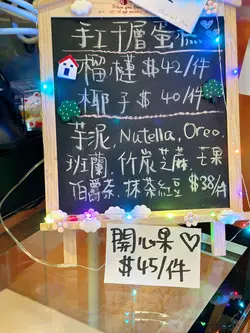 手工千層蛋糕
榴槤 $42/件
椰子 $40/件
芋泥, Nutella, Oreo,
班蘭, 竹炭芝蔴, 芒果
伯爵茶, 抹茶紅豆 $38/件
開心果♡
$45/件